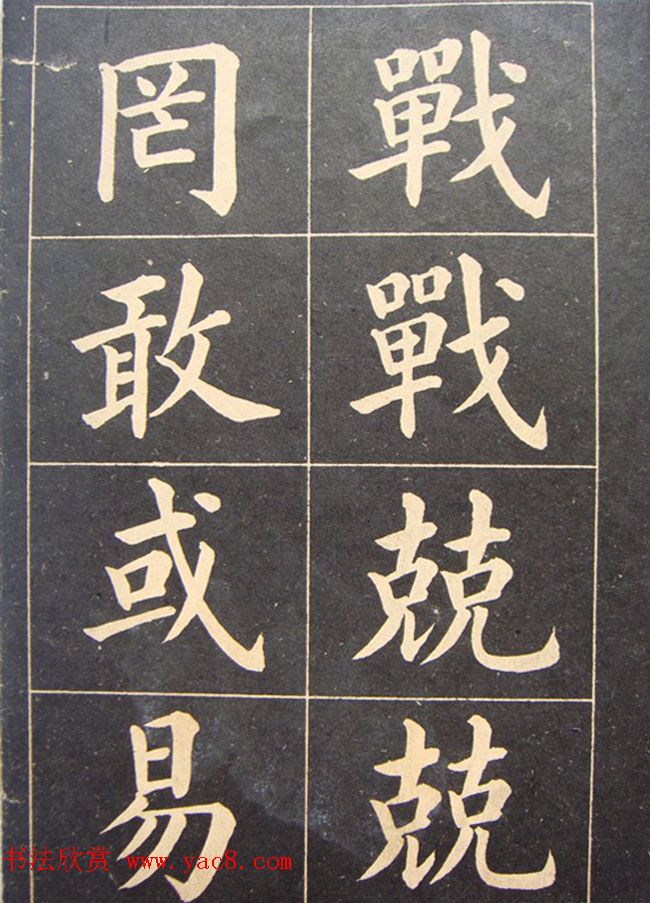 戰戰兢兢
罔敢或易
书法欣赏 www.yac8.com